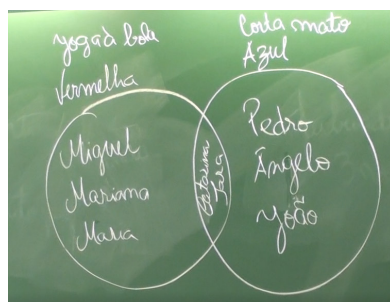 yogà à bola
Vermelha
Corta mato
Azul
Miguel
Mariana
Maria
Catarina
Sara
Pedro
Ângelo
yoão